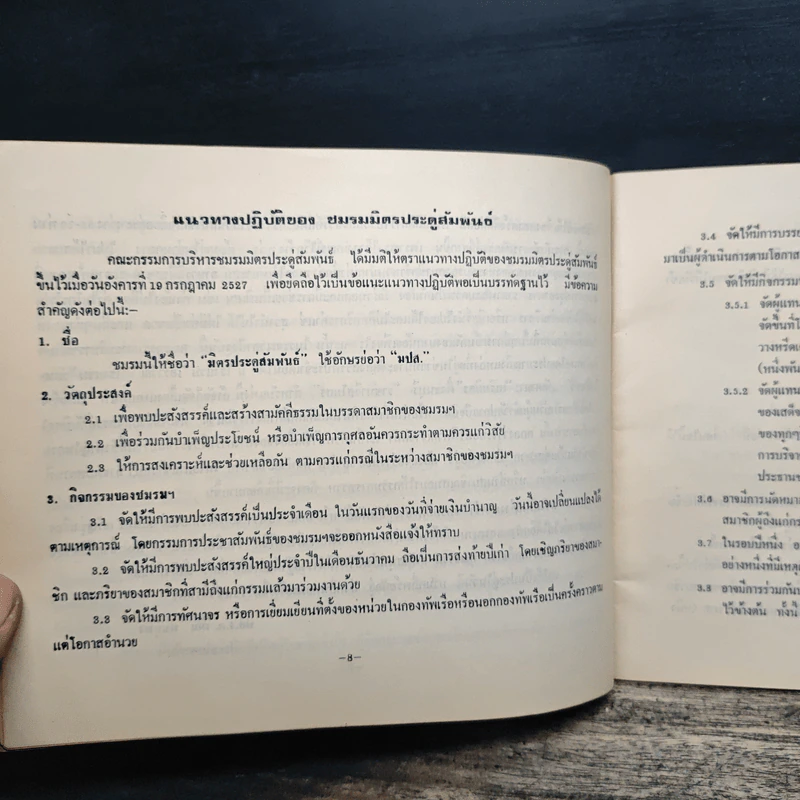 แนวทางปฏิบัติของ ชมรมมิตรประดู่สัมพันธ์
คณะกรรมการบริหารชมรมมิตรประดู่สัมพันธ์ ได้มีมติให้ตราแนวทางปฏิบัติของชมรมมิตรประดู่สัมพันธ์
ขึ้นไว้เมื่อวันอังคารที่ 19 กรกฎาคม 2527 เพื่อยึดถือไว้เป็นข้อแนะแนวทางปฏิบัติพอเป็นบรรทัดฐานไว้ มีข้อความ
สำคัญดังต่อไปนี้:-
1. ชื่อ
ชมรมนี้ให้ชื่อว่า "มิตรประดู่สัมพันธ์" ใช้อักษรย่อว่า "มปส."
2. วัตถุประสงค์
2.1 เพื่อพบปะสังสรรค์และสร้างสามัคคีธรรมในบรรดาสมาชิกของชมรมฯ
2.2 เพื่อร่วมกันบำเพ็ญประโยชน์ หรือบำเพ็ญการกุศลอันควรกระทำตามควรแก่วิสัย
2.3 ให้การสงเคราะห์และช่วยเหลือกัน ตามควรแก่กรณีในระหว่างสมาชิกของชมรมฯ
3. กิจกรรมของชมรมฯ
3.1 จัดให้มีการพบปะสังสรรค์เป็นประจำเดือน ในวันแรกของวันที่จ่ายเงินบำนาญ วันนี้อาจเปลี่ยนแปลงได้
ตามเหตุการณ์ โดยกรรมการประชาสัมพันธ์ของชมรมฯจะออกหนังสือแจ้งให้ทราบ
3.2 จัดให้มีการพบปะสังสรรค์ใหญ่ประจำปีในเดือนธันวาคม ถือเป็นการส่งท้ายปีเก่า โดยเชิญภริยาของสมา-
ชิก และภริยาของสมาชิกที่สามีถึงแก่กรรมแล้วมาร่วมงานด้วย
3.3 จัดให้มีการทัศนาจร หรือการเยี่ยมเยียนที่ตั้งของหน่วยในกองทัพเรือหรือนอกกองทัพเรือเป็นครั้งคราวตาม
แต่โอกาสอำนวย
-8-
3.4 จัดให้มีการบรรย
มาเป็นผู้ดำเนินการตามโอกาส
3.5 จัดให้มีกิจกรรม
3.5.1 จัดผู้แทน
จัดขึ้นที่
วางหรีด
(หนึ่งพัน
3.5.2 จัดผู้แทน
ของเสด็จ
ของทุกๆ
การบริจา
ประธานช
3.6 อาจมีการนัดหมาย
สมาชิกผู้ถึงแก่กร
3.7 ในรอบปีหนึ่ง อ
อย่างหนึ่งที่มีเหตุ
3.8 อาจมีการร่วมกัน
ไว้ข้างต้น ทั้งนี้